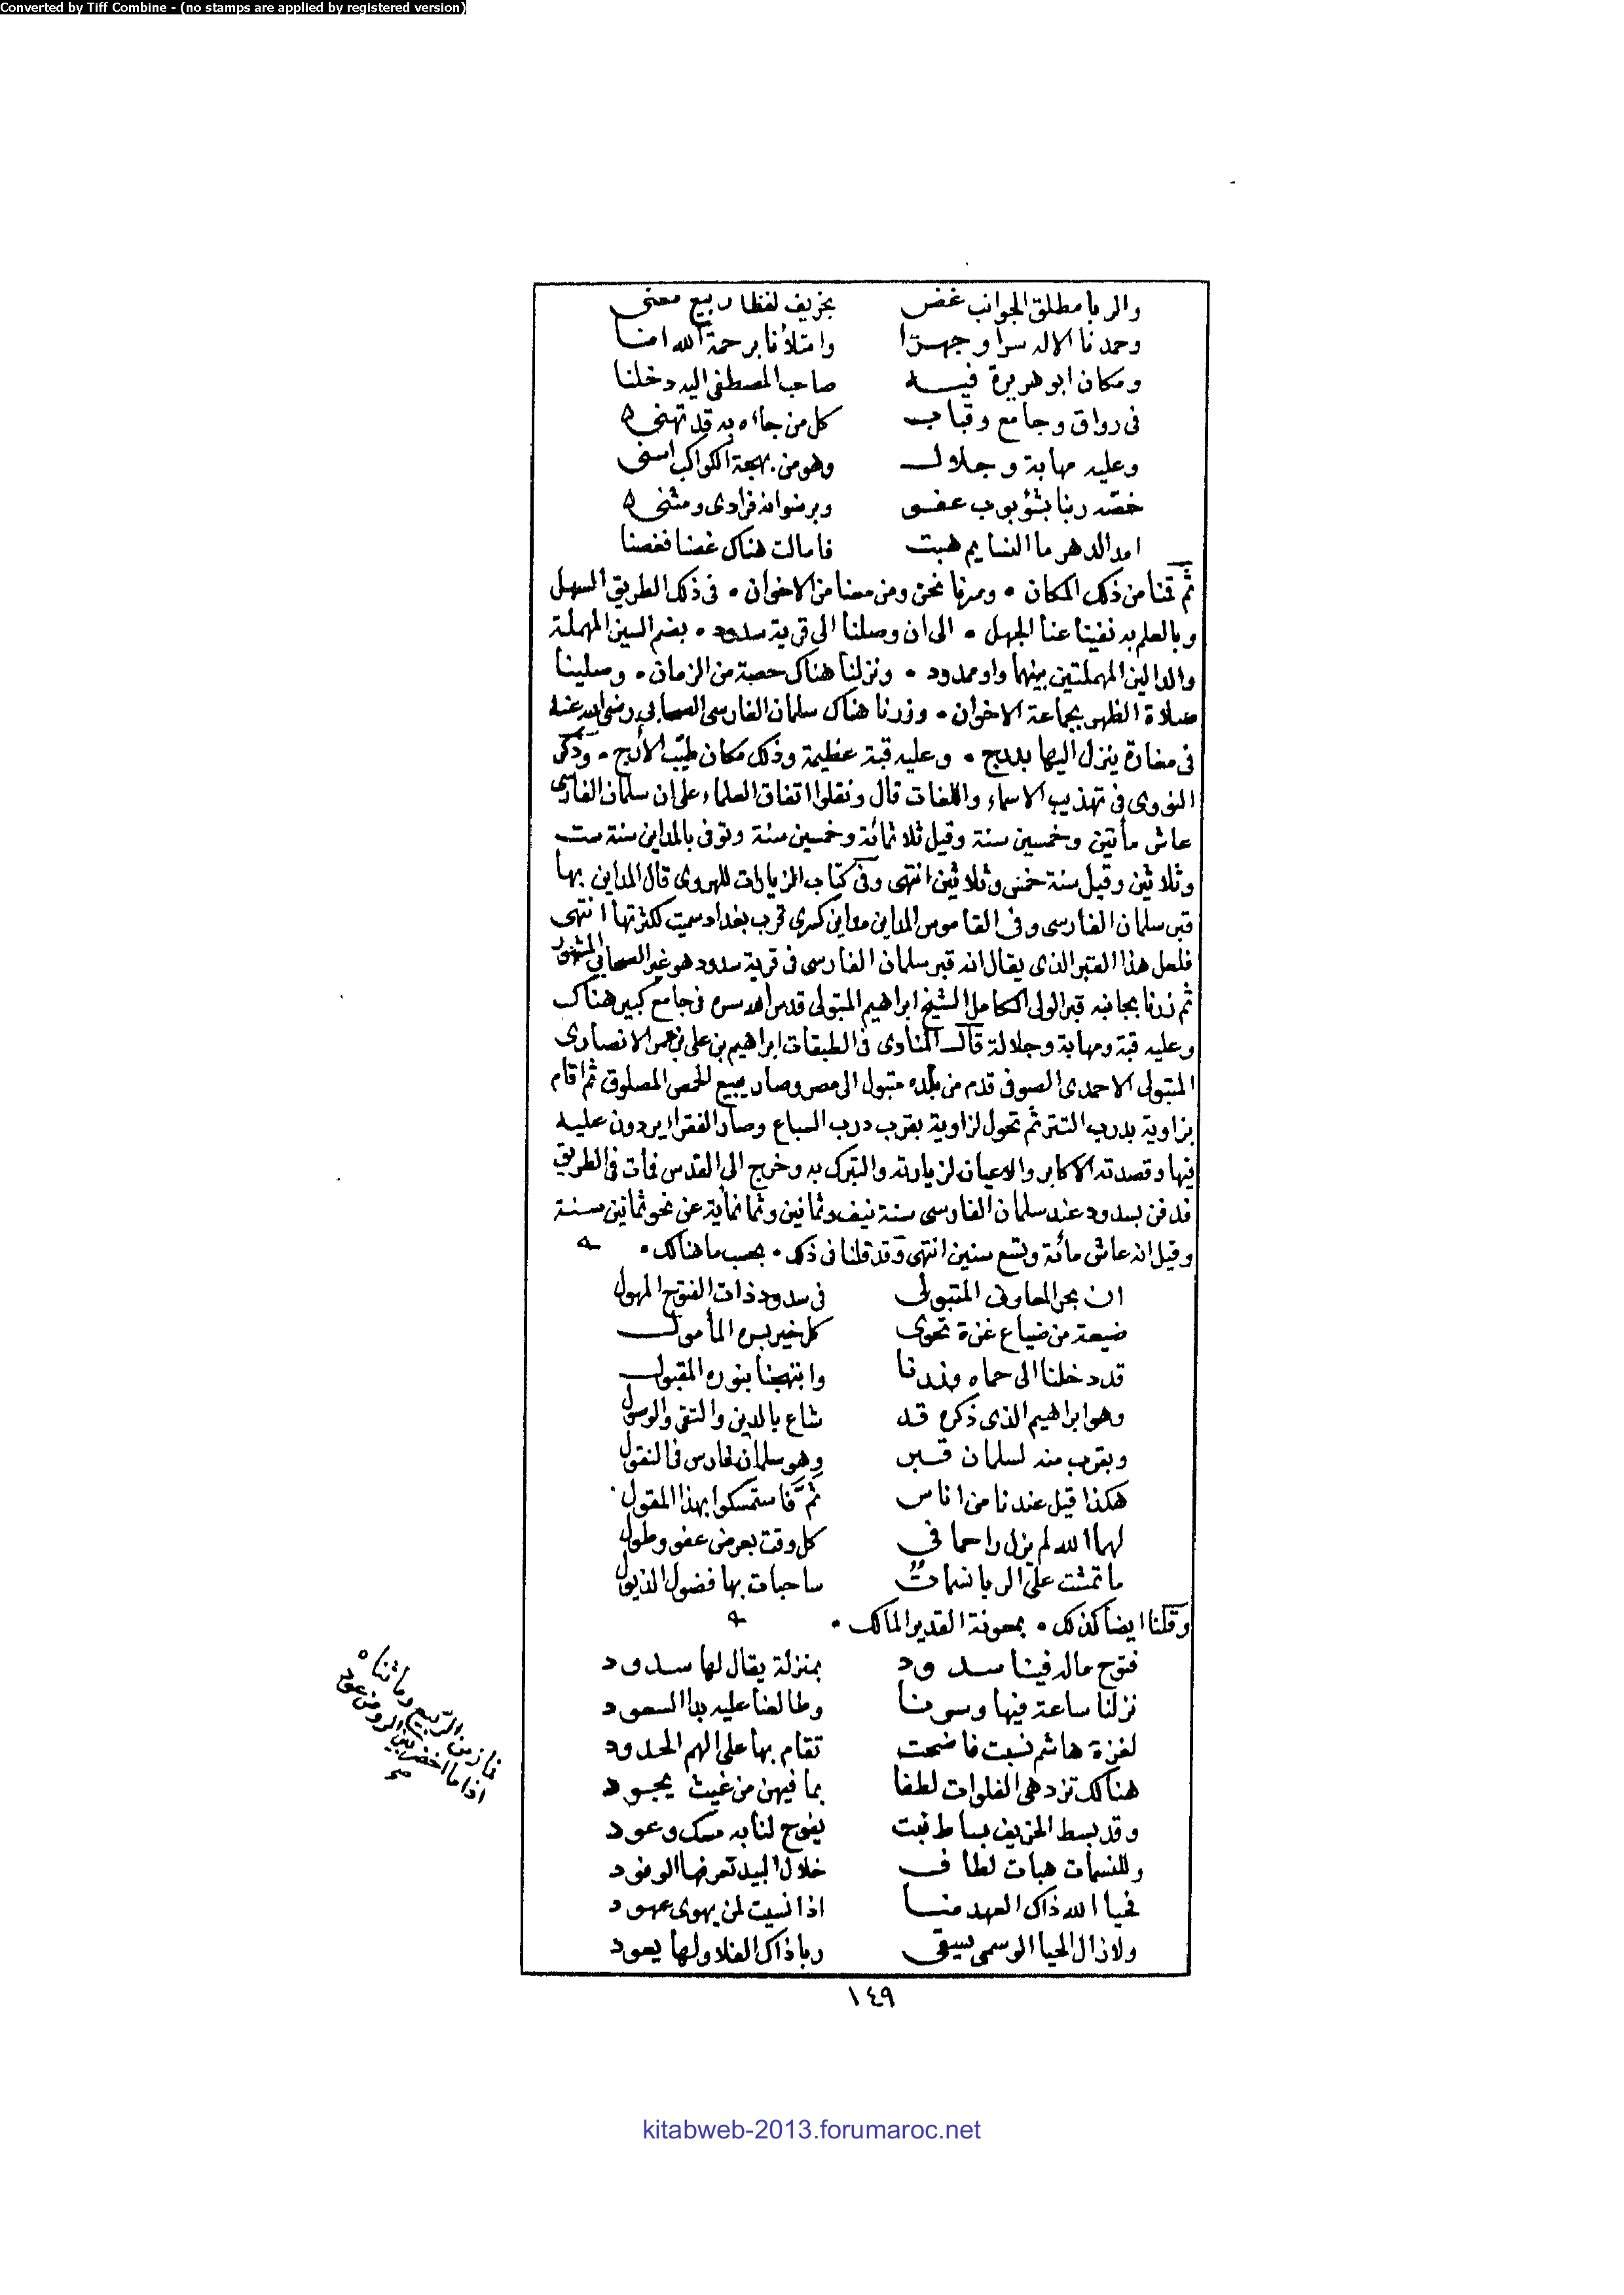 Converted by Tiff Combine - (no stamps are applied by registered version)
والربا مطلق الجوانب غض بخريف لفظا ربيع معنى
وحمدنا الاله سرا وجهرا وامتلأنا برحمة الله امنا
ومكان ابو هريرة فيه صاحب المصطفى اليه دخلنا
فى رواق وجامع وقباب كل من جاءه به قد تهنى
وعليه مهابة وجلال وهو من بهجة الكواكب اسنى
خصه ربنا بشؤبوب عفو وبرضوانه فرادى ومثنى
امد الدهر ما النسايم هبت فامالت هناك غصنا فغصنا
ثم قمنا من ذلك المكان • وسرنا نحن ومن معنا من الاخوان • فى ذلك الطريق السهل
وبالعلم به نفينا عنا الجهل • الى ان وصلنا الى قرية سدود • بضم السين المهملة
والدالين المهملتين بينهما واو ممدود • ونزلنا هناك حصة من الزمان • وصلينا
صلاة الظهر بجماعة الاخوان • وزرنا هناك سلمان الفارسى الصحابى رضى الله عنه
فى مغارة ينزل اليها بدرج • وعليه قبة عظيمة وذلك مكان طيب الأرج • وذكر
النووى فى تهذيب الاسماء واللغات قال ونقلوا اتفاق العلماء على ان سلمان الفارسى
عاش مأتين وخمسين سنة وقيل ثلاثمائة وخمسين سنة وتوفى بالمداين سنة ست
وثلاثين وقيل سنة خمس وثلاثين انتهى وفى كتاب الزيارات للهروى قال المداين بها
قبر سلمان الفارسى وفى القاموس المداين مداين كسرى قرب بغداد سميت لكثرتها انتهى
فلعل هذا القبر الذى يقال انه قبر سلمان الفارسى فى قرية سدود هو غير الصحابي المشهور
ثم زرنا بجانبه قبر الولى الكامل الشيخ ابراهيم المتبولى قدس الله سره فى جامع كبير هناك
وعليه قبة ومهابة وجلالة قال المناوى فى الطبقات ابراهيم بن على بن عمر الانصارى
المتبولى الاحمدى الصوفى قدم من بلده متبول الى مصر وصار يبيع الحمص المصلوق ثم اقام
بزاوية بدرب التتر ثم تحول لزاوية بقرب درب السباع وصار الفقراء يردون عليه
فيها وقصدته الاكابر والاعيان لزيارته والتبرك به وخرج الى القدس فمات فى الطريق
فدفن بسدود عند سلمان الفارسى سنة نيف وثمانين وثمانماية عن نحو ثمانين سنة
وقيل انه عاش مائة وتسع سنين انتهى وقد قلنا فى ذلك • بحسب ما هنالك •
ان بحر المعارف المتبولى فى سدود ذات الفتوح المهول
ضيعة من ضياع غزة تحوى كل خير بسره المأمول
قد دخلنا الى حماه وزرنا وابتهجنا بنوره المقبول
وهو ابراهيم الذى ذكره قد شاع بالدين والتقى والوصول
وبقرب منه لسلمان قبر وهو سلمان فارس فى النقول
هكذا قيل عندنا من اناس ثم فاستمسكوا بهذا المقول
لهما الله لم يزل راحما فى كل وقت بعرض عفو وطول
ما تمشت على الربا نسمات ساحبات بها فضول الذيول
وقلنا ايضا كذلك • بمعونة القدير المالك •
فتوح ماله فينا سدود بمنزلة يقال لها سدود
نزلنا ساعة فيها وسرنا وطالعنا عليه بدا السعود
لغزة هاشم نسبت فاضحت تقام بها على الهم الحدود
هنالك تزدهى الفلوات لطفا بما فيهن من غيث يجود
وقد بسط الخريف بساط نبت يفوح لنا به مسك وعود
وللنسمات هبات لطاف خلال البيد تعرفها الوفود
فحيا الله ذاك العهد منا اذا نسيت لمن يهوى عهود
ولا زال الحيا الوسمى يسقى ربا ذاك الفلا ولها يعود
فما زمن الربيع وما ثناه
اذا ما اخضر بين الروض عود
١٤٩
kitabweb-2013.forumaroc.net